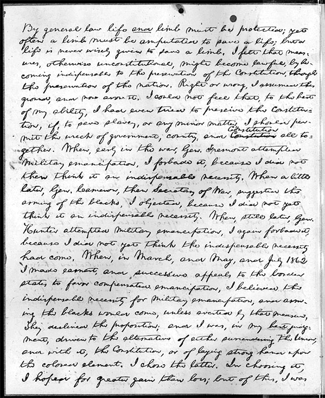 By general law life and limb must be protected; yet
often a limb must be amputated to save a life; but a
life is never wisely given to save a limb. I felt that meas-
ures, otherwise unconstitutional, might become lawful, by be-
coming indispensable to the preservation of the Constitution, through
the preservation of the nation. Right or wrong, I assumed this
ground, and now avow it. I could not feel that, to the best
of my ability, I had even tried to preserve the Constitu-
tion, if, to save slavery, or any minor matter, I should per-
mit the wreck of government, country, and Constitution all to-
gether. When, early in the war, Gen. Fremont attempted
military emancipation, I forbade it, because I did not
then think it an indispensable necessity. When a little
later, Gen. Cameron, then Secretary of War, suggested the
arming of the blacks, I objected, because I did not yet
think it an indispensable necessity. When, still later, Gen.
Hunter attempted military emancipation, I again forbade it,
because I did not yet think the indispensable necessity
had come. When, in March, and May, and July 1862
I made earnest, and successive appeals to the border
states to favor compensated emancipation, I believed the
indispensable necessity for military emancipation, and arm-
ing the blacks would come, unless averted by that measure.
They declined the proposition; and I was, in my best judg-
ment, driven to the alternative of either surrendering the Union,
and with it, the Constitution, or of laying strong hand upon
the colored element. I chose the latter. In choosing it,
I hoped for greater gain than loss; but of this, I was